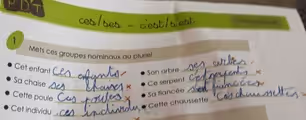 PDT
ces/ses - c'est/s'est
1
Mets ces groupes nominaux au pluriel
• Cet enfant Ces enfants • Son arbre ses arbres
• Sa chaise ses chaises • Ce serpent
• Cette poule Ces poules • Sa fiancée ses fiancées
• Cet individu ces individus • Cette chaussette Ces chaussettes